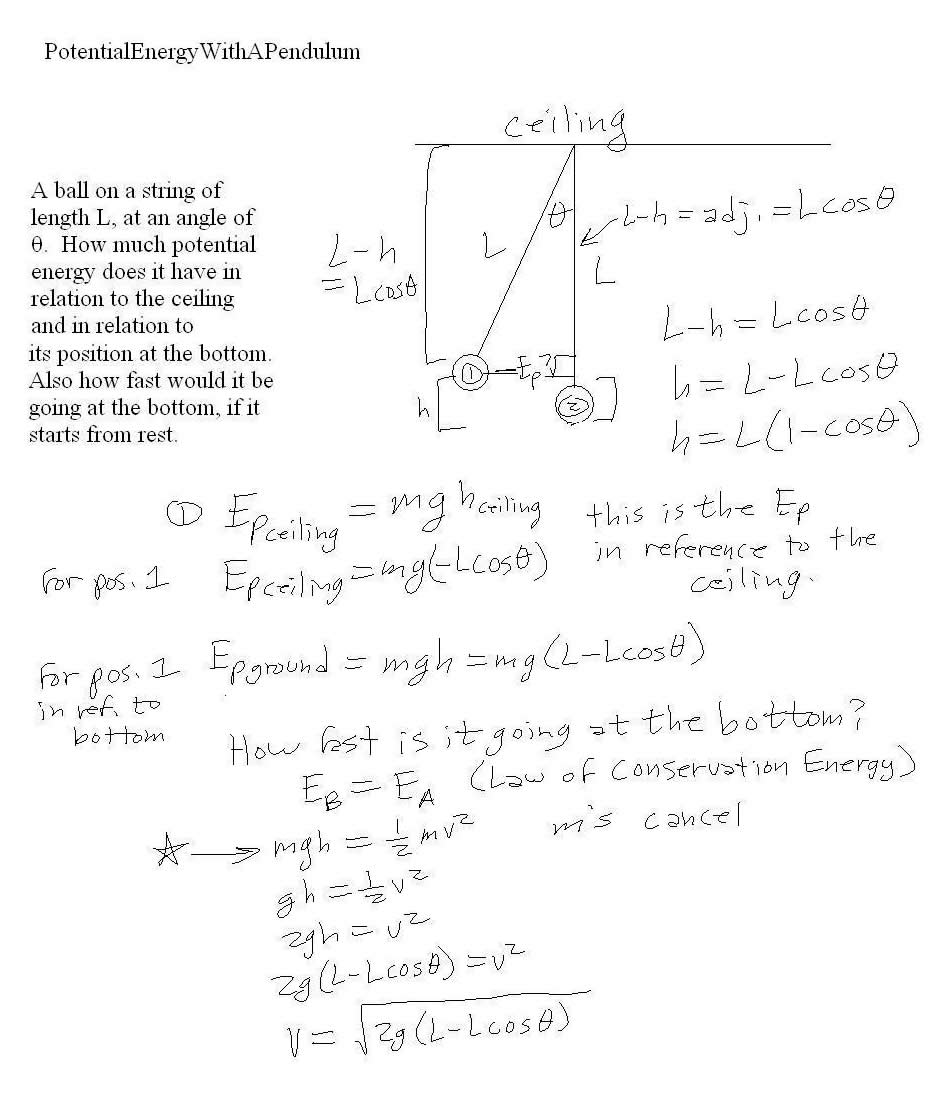 PotentialEnergyWithAPendulum
ceiling
A ball on a string of
length L, at an angle of
θ. How much potential
energy does it have in
relation to the ceiling
and in relation to
its position at the bottom.
Also how fast would it be
going at the bottom, if it
starts from rest.
L-h
= Lcosθ
L
θ
L-h = adj. = Lcosθ
L
①
Ep?
②
h
L-h = Lcosθ
h = L-Lcosθ
h = L(1-cosθ)
① Epceiling = mghceiling this is the Ep
in reference to the
ceiling.
For pos. 1 Epceiling = mg(-Lcosθ)
For pos. 1 Epground = mgh = mg(L-Lcosθ)
in ref. to
bottom
How fast is it going at the bottom?
EB = EA (Law of Conservation Energy)
☆ → mgh = 1/2 mv² m's cancel
gh = 1/2 v²
2gh = v²
2g(L-Lcosθ) = v²
v = √2g(L-Lcosθ)